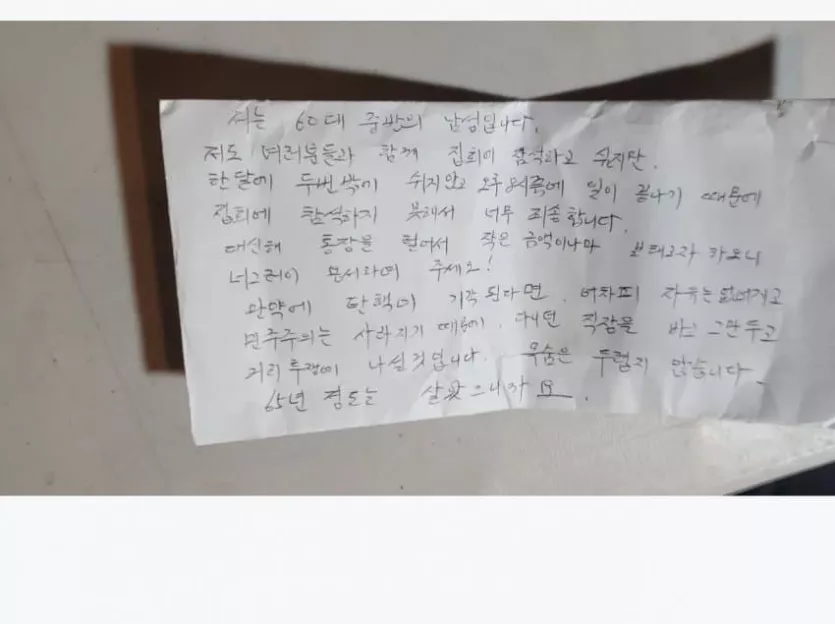 저는 60대 중반의 남성입니다.
저도 여러분들과 함께 집회에 참석하고 싶지만.
한달에 두번밖에 쉬지않고 오후 8시쯤에 일이 끝나기 때문에
집회에 참석하지 못해서 너무 죄송합니다.
대신해 통장을 털어서 작은 금액이나마 보태고자 하오니
너그러이 용서하여 주세요!
만약에 탄핵이 기각된다면. 어차피 자유는 없어지고
민주주의는 사라지기 때문에. 다니던 직장을 바로 그만두고
거리투쟁에 나설것입니다. 목숨은 두렵지 않습니다
65년 정도는 살았으니까요.